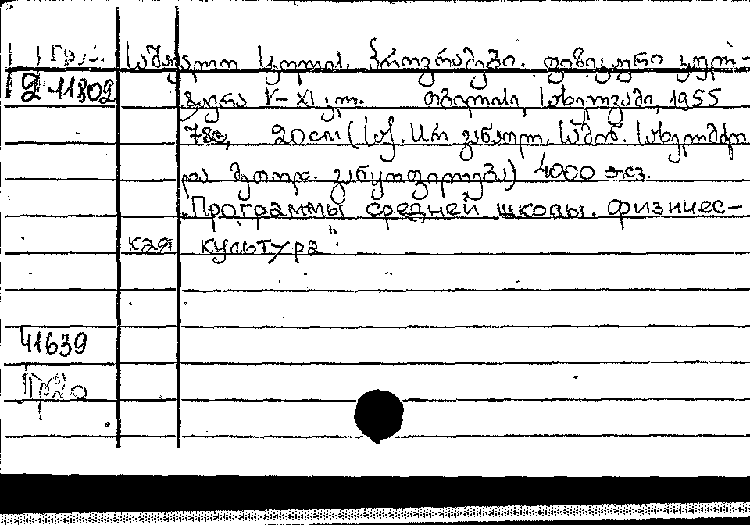 საშუალო სკოლის პროგრამები. ფიზიკური კულ-
2 11802
ტურა V-XI კლ. თბილისი, სახელგამი, 1955
78გ, 20სმ (საქ. სსრ განათლ. სამინ. სასკოლო
და მეთოდ. განყოფილება) 4000 ეკз.
"Программы средней школы. Физичес-
кая культура"
41639